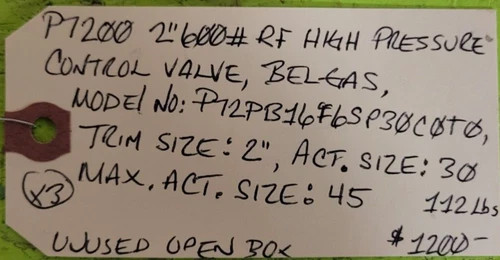 P1200 2" 600# RF HIGH PRESSURE
CONTROL VALVE, BELGAS,
MODEL NO: P12PB16F6SP30C0T0,
TRIM SIZE: 2", ACT. SIZE: 30
X3 MAX. ACT. SIZE: 45
112 Lbs
UNUSED OPEN BOX $1200-